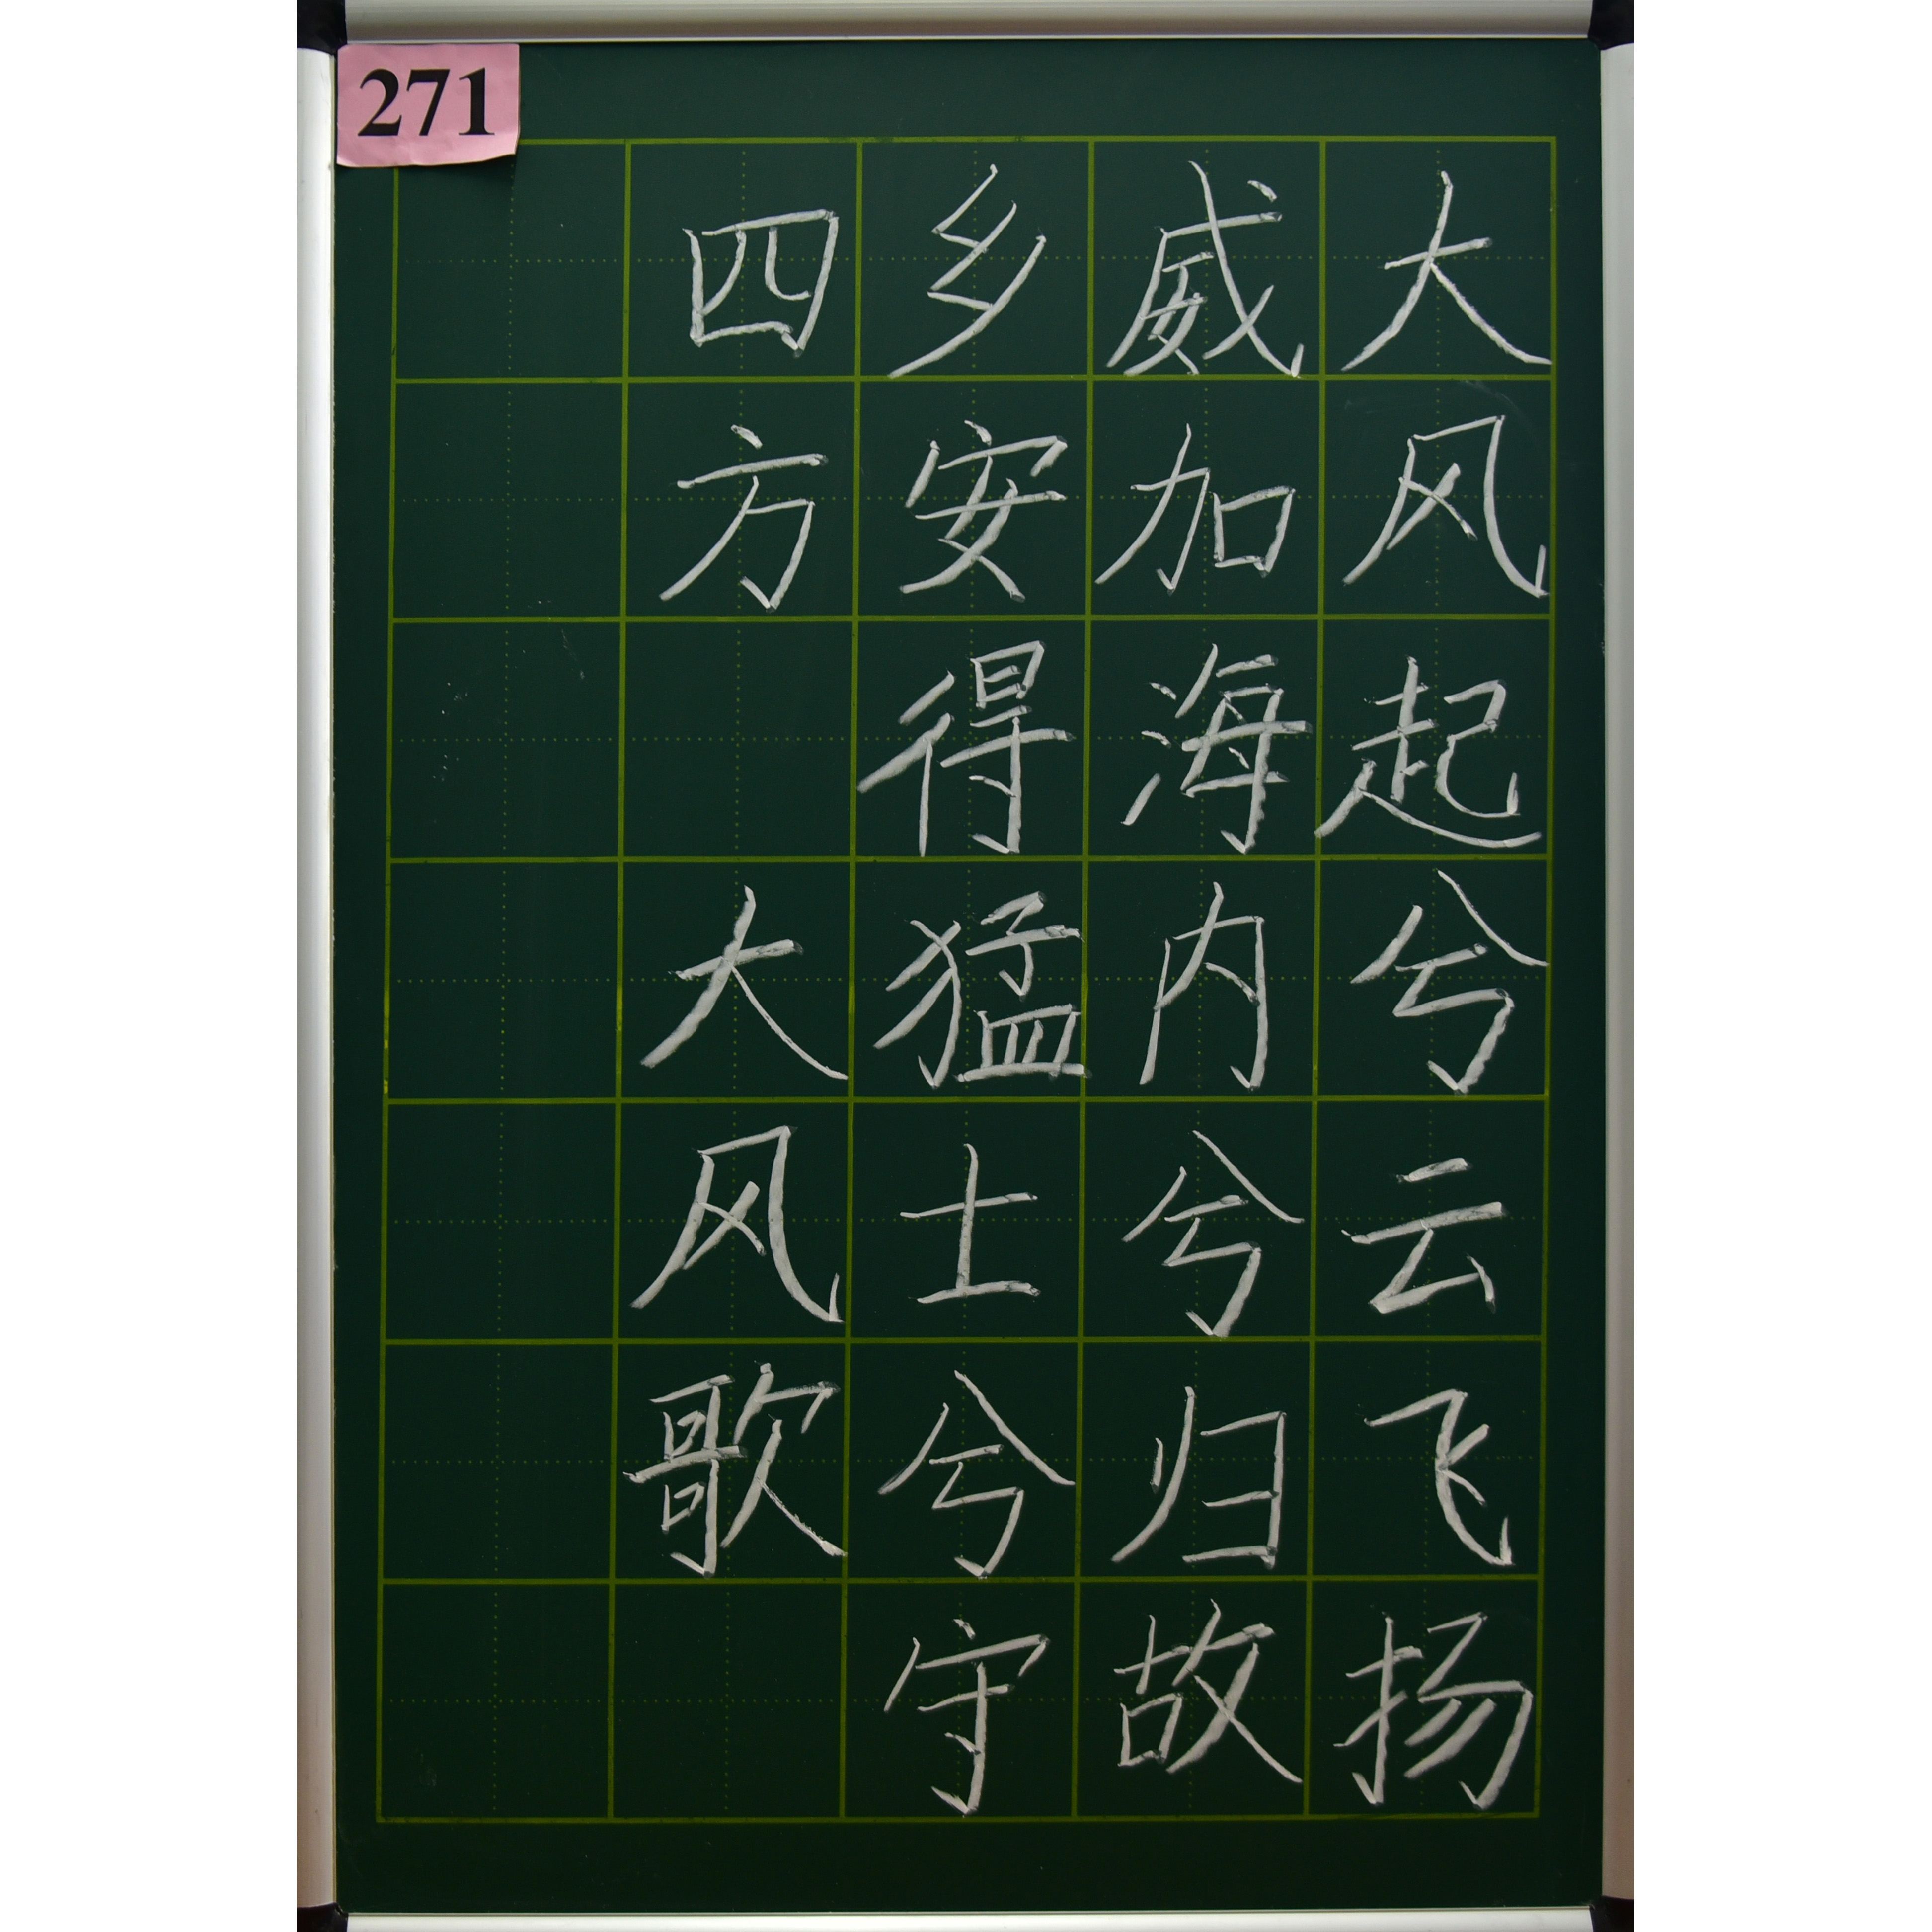 271
大风起兮云飞扬
威加海内兮归故
乡安得猛士兮守
四方 大风歌